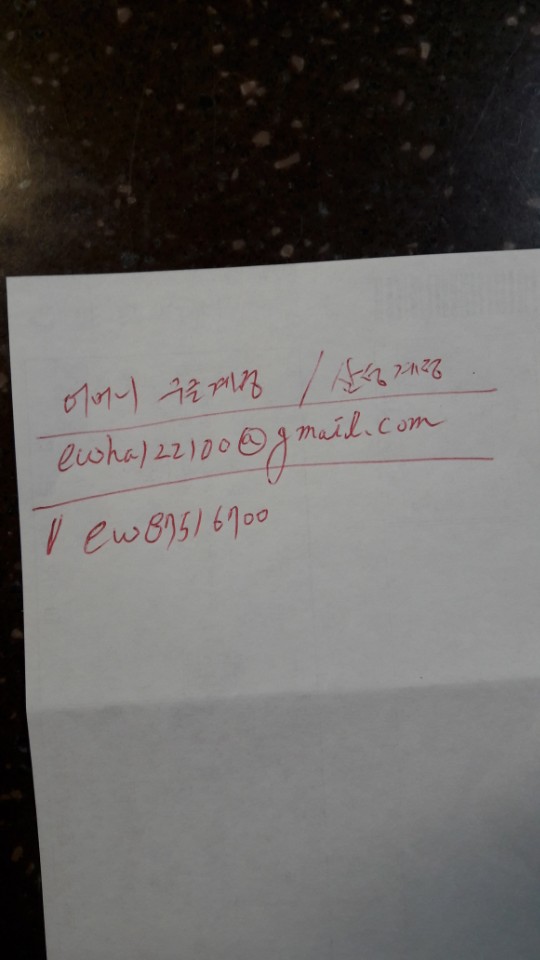 어머니 구글계정 / 삼성계정
ewha122100@gmail.com
〃 ew87516700